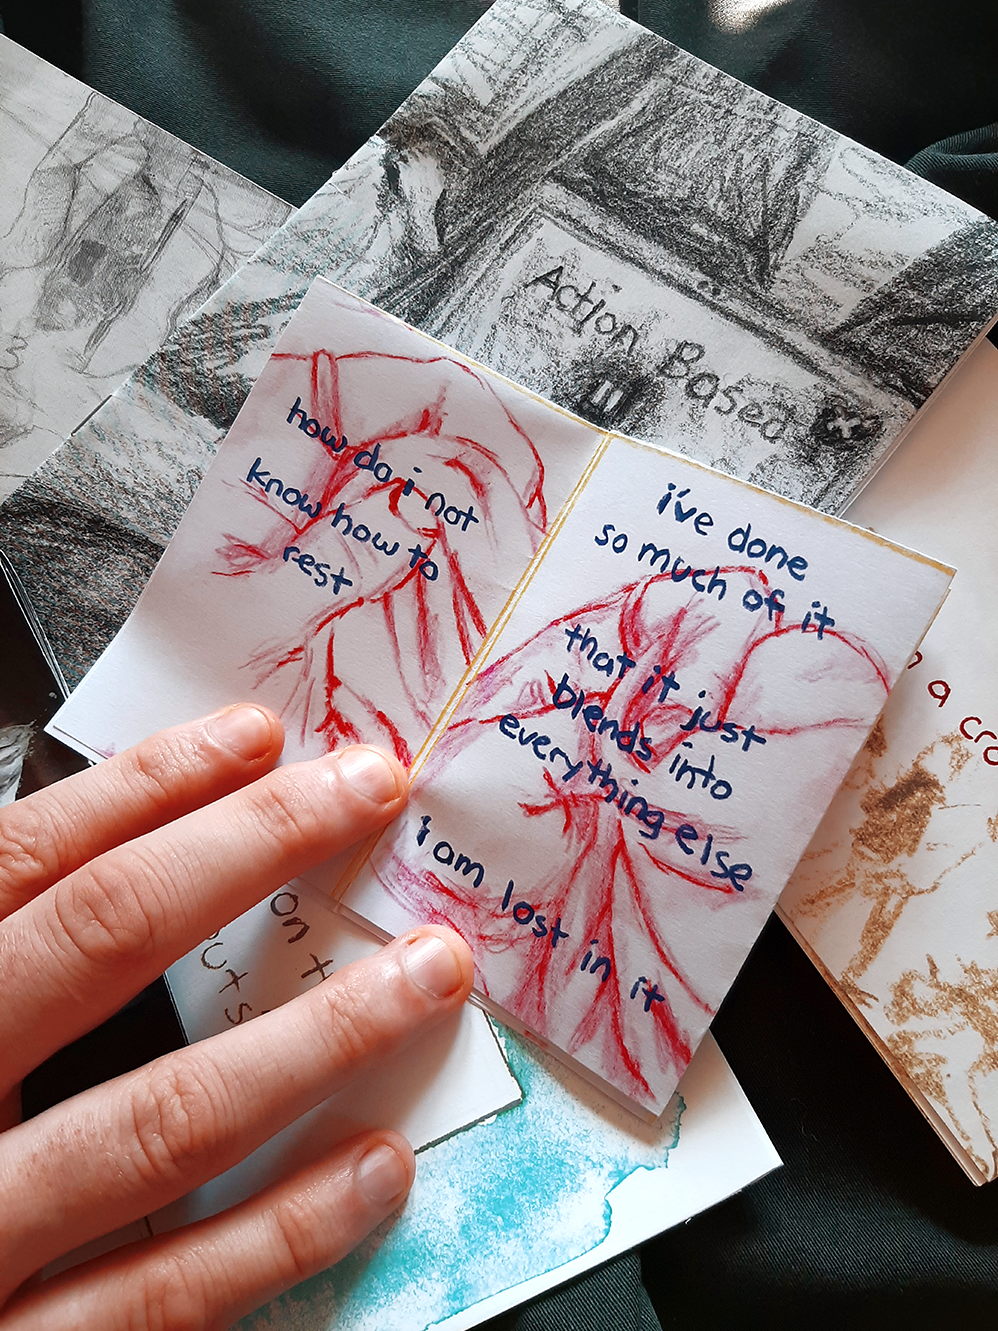 Action Based
how do i not
know how to
rest
i've done
so much of it
that it just
blends into
everything else
i am lost in it
a cro
on t